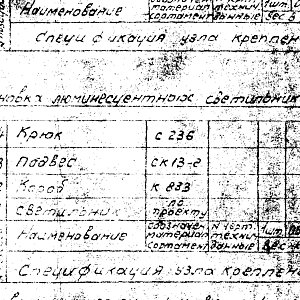 Наименование материал технич. 1шт.
сортамент данные вес
Спецификация узла креплен
новка люминесцентных светильник
Крюк с 236
Подвес ск13-2
Короб к 833
светильник по проекту
Наименование обозначен. материал сортамент N черт. технич. данные 1шт. вес
Спецификация узла креплен